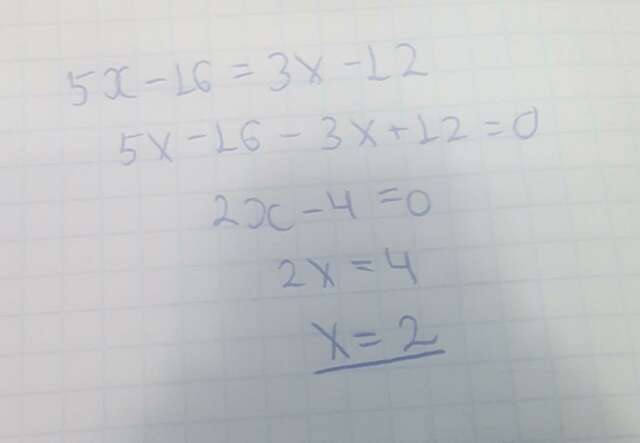 5x-16=3x-12
5x-16-3x+12=0
2x-4=0
2x=4
x=2